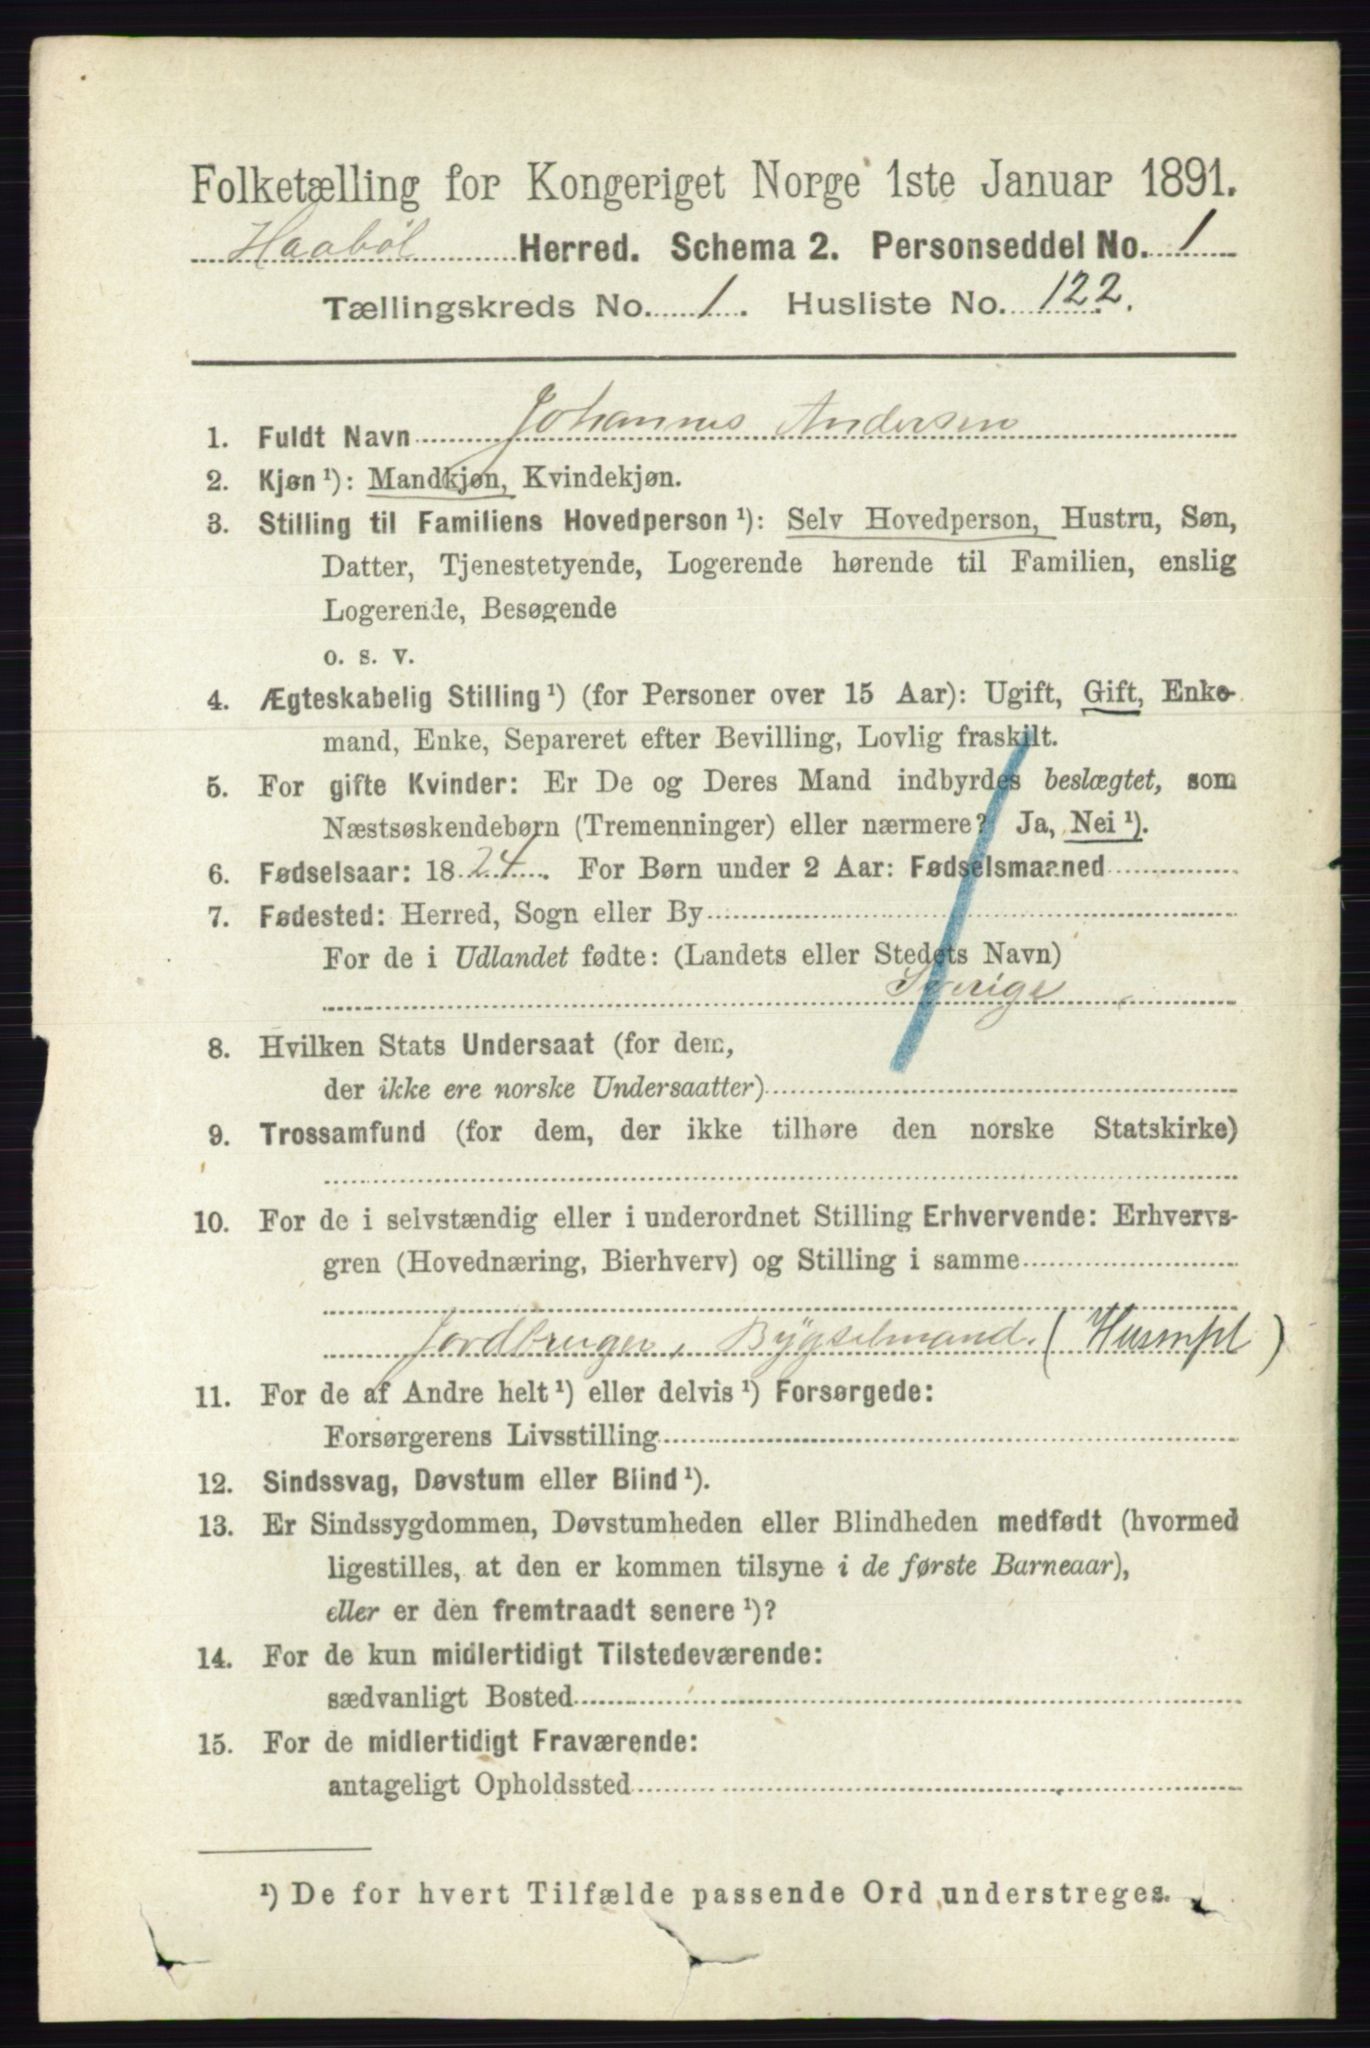 Folketælling for Kongeriget Norge 1ste Januar 1891.
Haabøl Herred. Schema 2. Personseddel No. 1
Tællingskreds No. 1. Husliste No. 122.
1. Fuldt Navn Johannes Andersen
2. Kjøn ¹): Mandkjøn, Kvindekjøn.
3. Stilling til Familiens Hovedperson ¹): Selv Hovedperson, Hustru, Søn,
Datter, Tjenestetyende, Logerende hørende til Familien, enslig
Logerende, Besøgende
o. s. v.
4. Ægteskabelig Stilling ¹) (for Personer over 15 Aar): Ugift, Gift, Enke-
mand, Enke, Separeret efter Bevilling, Lovlig fraskilt.
5. For gifte Kvinder: Er De og Deres Mand indbyrdes beslægtet, som
Næstsøskendebørn (Tremenninger) eller nærmere? Ja, Nei ¹).
6. Fødselsaar: 1824. For Børn under 2 Aar: Fødselsmaaned
7. Fødested: Herred, Sogn eller By
For de i Udlandet fødte: (Landets eller Stedets Navn)
Sverige
8. Hvilken Stats Undersaat (for dem,
der ikke ere norske Undersaatter)
9. Trossamfund (for dem, der ikke tilhøre den norske Statskirke)
10. For de i selvstændig eller i underordnet Stilling Erhvervende: Erhvervs-
gren (Hovednæring, Bierhverv) og Stilling i samme
Jordbruger, Bygselmand. (Husmpl)
11. For de af Andre helt ¹) eller delvis ¹) Forsørgede:
Forsørgerens Livsstilling
12. Sindssvag, Døvstum eller Blind ¹).
13. Er Sindssygdommen, Døvstumheden eller Blindheden medfødt (hvormed
ligestilles, at den er kommen tilsyne i de første Barneaar),
eller er den fremtraadt senere ¹)?
14. For de kun midlertidigt Tilstedeværende:
sædvanligt Bosted
15. For de midlertidigt Fraværende:
antageligt Opholdssted
¹) De for hvert Tilfælde passende Ord understreges.